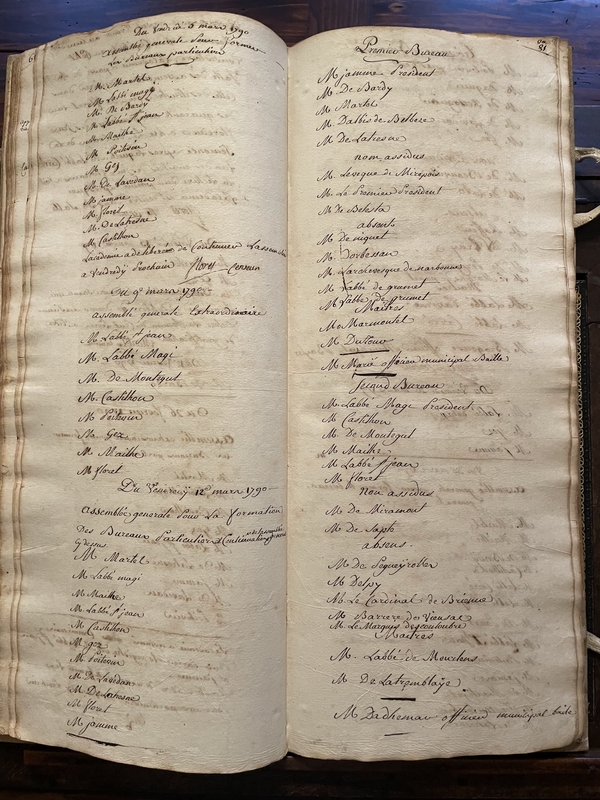 Du Vendredi 5 mars 1790
assemblée generale pour former
Les Bureaux particuliers
M. Martel
M. Labbé magi
M. De Bardy
M. Labbé St jean
M. Maithe
M. Poitevin
M. Gez
M. De Lavedan
M. jamme
M. floret
M. De Latresne
M. Castilhon
Lacademie a deliberée de Continuer Lassemblée
a Vendredy Prochain floret
Du 9e mars 1790
assemblé generale Extraordinaire
M. Labbé St jean
M. Labbé Magi
M. De Montegut
M. Castilhon
M. Poitevin
M. Gez
M. Maithe
M. floret
Du Vendredy 12e mars 1790
assemblée generale pour La formation
Des Bureaux Particuliers
M. Martel
M. Labbé magi
M. Maithe
M. Labbé St jean
M. Castilhon
M. gez
M. Poitevin
M. De Lavedan
M. De Latresne
M. floret
M. jamme
81
Premier Bureau
M jamme President
M. De Bardy
M. Martel
M. Dalbis de Belbeze
M De Latresne
nom assidus
M. Leveque de Mirepoix
M. Le Premier President
M. De Belesta
absents
M De niquet
M. Dorbessan
M. Larchevesque de narbonne
M Labbé de grumet
M Labbé de grumet
Maitres
M. Marmontel
M. Dutour
M. Marie officier municipal Baille
Second Bureau
M. Labbé Mage President
M Castilhon
M. De Montegut
M. Maithe
M. Labbé St jean
M. floret
non assidus
M De Miramont
M. De Sapte
absens
M De Segueyrolles
M Despy
M. Le Cardinal de Brienne
M. Barrere de Vieusac
M. Le Marquis
Maitres
M. Labbé de Mourlens
M. De Latremblaÿe
M Dadhemar officier municipal baile